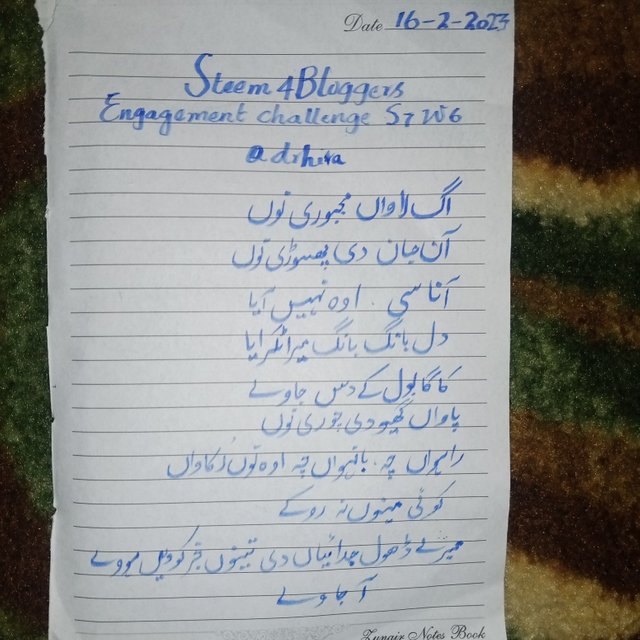 Date 16-2-2023
Steem 4Bloggers
Engagement challenge S7 W6
@drhira
اگ لاواں مجبوری نوں
آن جان دی پھسوڑی نوں
آنا سی اوہ نہیں آیا
دل بانگ بانگ میرا ٹکرایا
کاگا بول کے دس جاوے
پاواں گھیو دی چوری نوں
راہواں چہ باہنواں چہ اوہ نوں لکاواں
کوئی مینوں نہ روکے
میرے ڈھول جدائیاں دی تینوں خبر کویں ہووے
آ جاوے
Zunair Notes Book